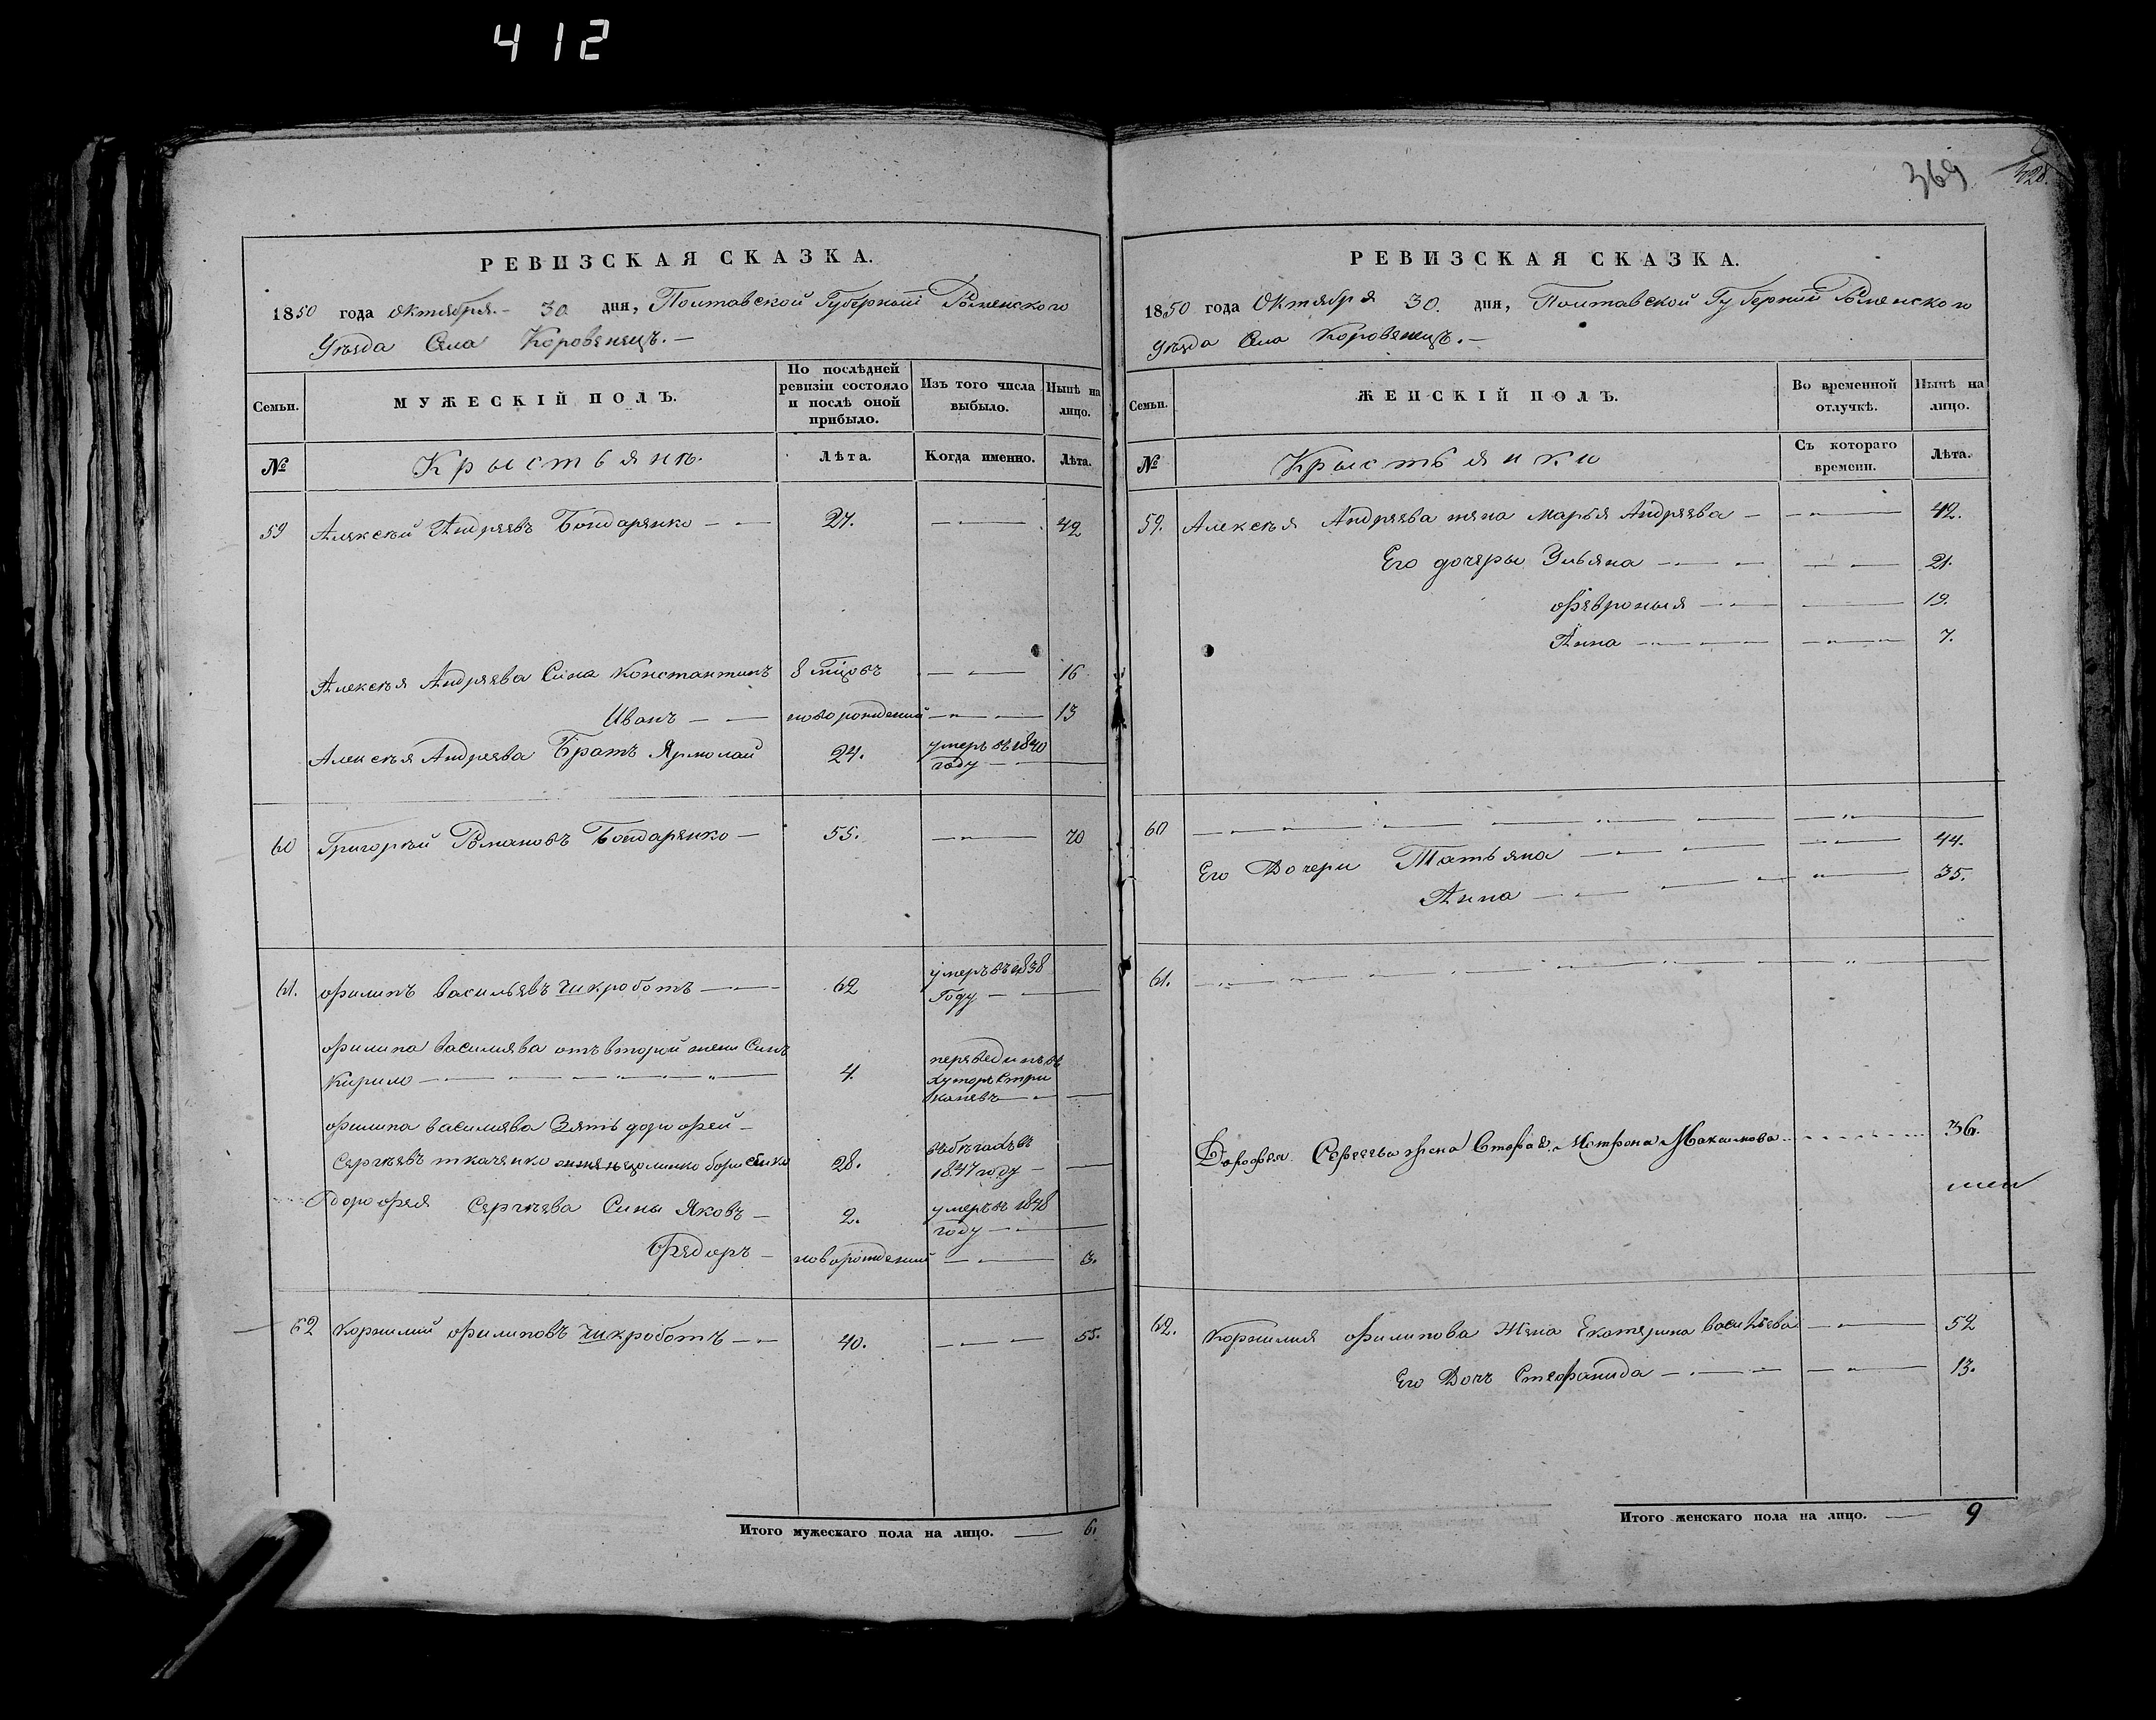 412
369
328.
РЕВИЗСКАЯ СКАЗКА.
1850 года Октября 30 дня, Полтавской Губернии Роменского
Уѣзда Села Коровенецъ.
Семьи.
МУЖЕСКІЙ ПОЛЪ.
По послѣдней ревизіи состояло и послѣ оной прибыло.
Изъ того числа выбыло.
Нынѣ на лицо.
№
Крыстьянѣ.
Лѣта.
Когда именно.
Лѣта.
59 Алексѣй Андреевъ Бондаренко 27. 42
Алексѣя Андреева Сина Константинъ 8 мѣцовъ 16
Иванъ новорождений 13
Алексѣя Андреева Братъ Ярмолай 24. умеръ въ 1840
году
60 Григорѣй Романовъ Бондаренко 55. 70
61. Филипъ Васильевъ Чикроботъ 62 умеръ въ 1838
Году
Филипа Василиева отъ второй жени Синъ
Кирило 4. перевединъ въ
хуторъ
Филипа Василиева Зять дорофей
Сергѣевъ ткаченко 28. въ бѣгахъ въ
1847 году
Дорофея Сергѣева Сины Яковъ 2. умеръ въ 1848
году
Федоръ новорождений 3.
62 Корнилий Филиповъ Чикроботъ 40. 55.
Итого мужескаго пола на лицо. 6.
РЕВИЗСКАЯ СКАЗКА.
1850 года Октября 30. дня, Полтавской Губерний Роменского
Уѣзда Села Коровенецъ.
Семьи.
ЖЕНСКІЙ ПОЛЪ.
Во временной отлучкѣ.
Нынѣ на лицо.
№
Крыстьянки
Съ котораго времени.
Лѣта.
59. Алексѣя Андреева жена Марья Андреева 42.
Его дочеры Ульяна 21.
Февронья 19.
Анна 7.
60
Его Дочери Татьяна 44.
Анна 35.
61.
Дорофея Сергеева жена Вторая Мотрона Максимова 36.
62. Корнилия Филипова Жена Екатерина Васильева 52
Его Дочъ Стефанида 13.
Итого женскаго пола на лицо. 9